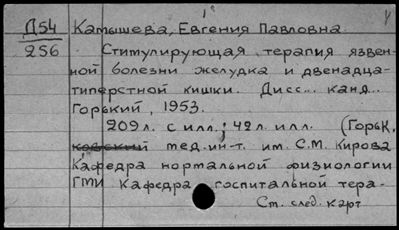 Д54
256
Катышева, Евгения Павловна.
Ститулирующая терапия язвен-
ной болезни желудка и двенадца-
типерстной кишки. Дисс... канд...
Горький, 1953.
209 л. с илл.; 42 л. илл. (Горьк.
мед. ин-т. им. С.М. Кирова
Кафедра нормальной физиологии
ГМИ Кафедра госпитальной тера-
См. след. карт